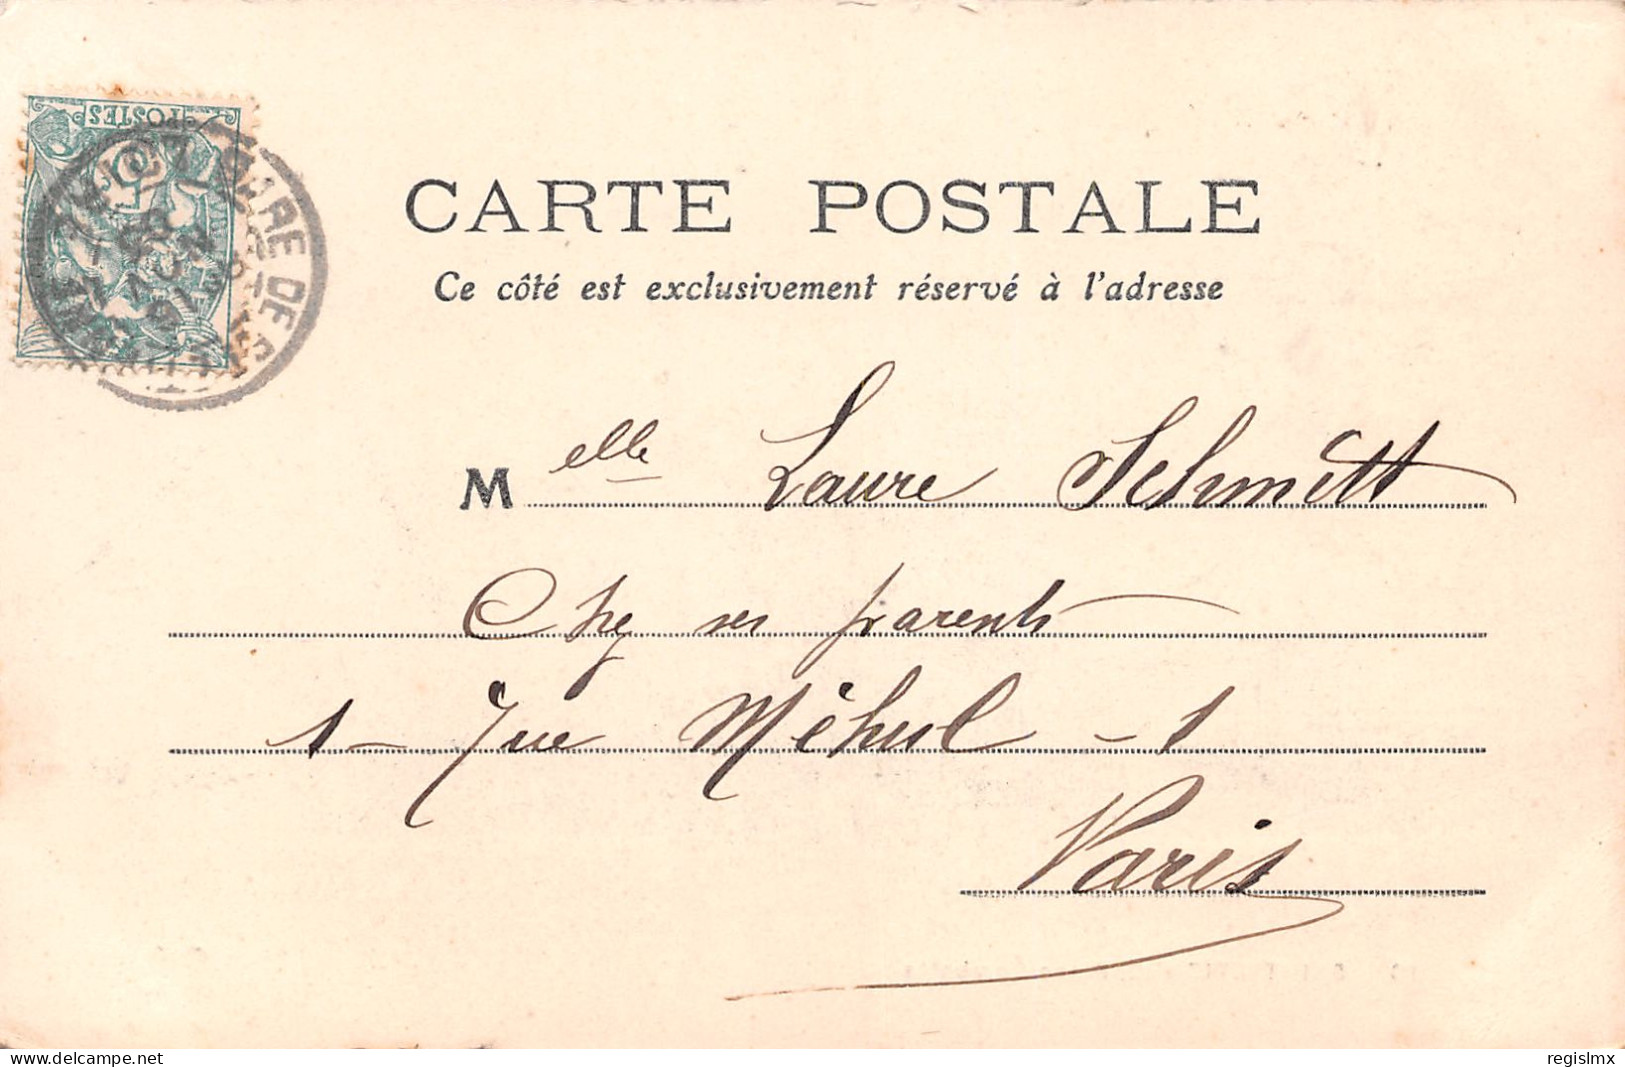 POSTES
GARE DE
CARTE POSTALE
Ce côté est exclusivement réservé à l'adresse
Melle Laure Schmitt
Chez ses parents
1 - Rue Méhul - 1
Paris
delcampe.net
regislmx